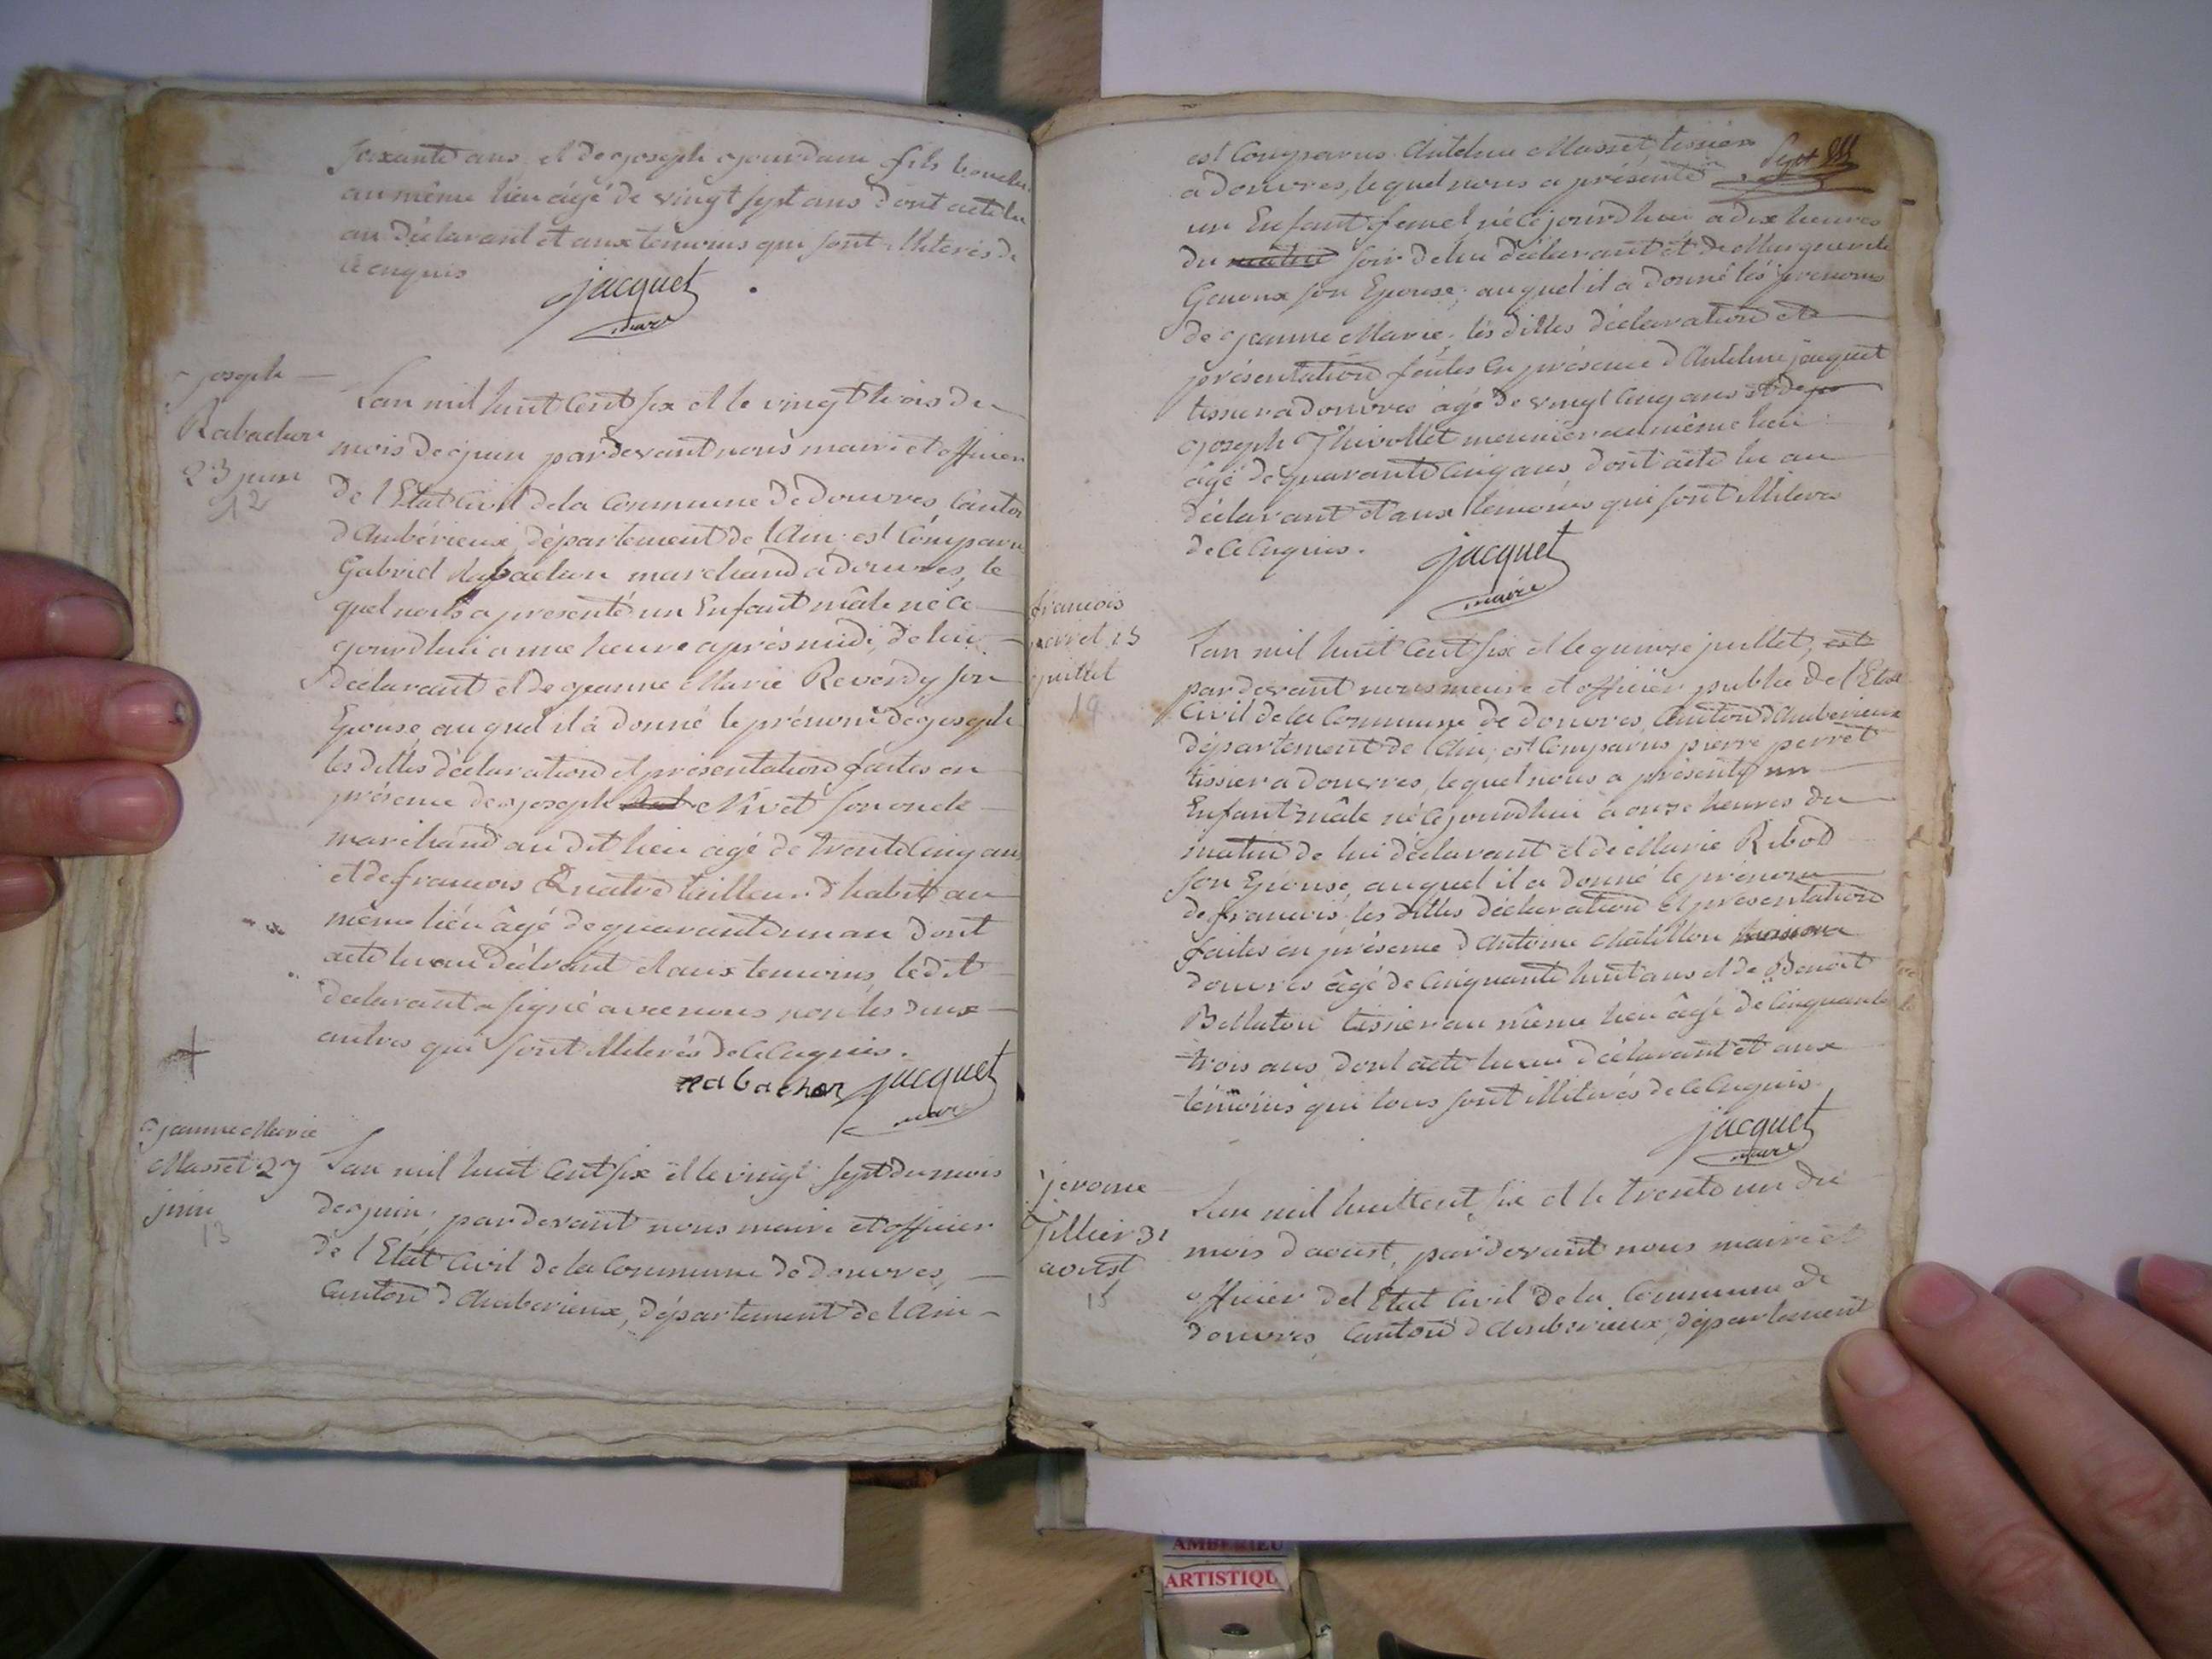 soixante ans, et de joseph jourdan fils
au même lieu âgé de vingt sept ans dont acte lu
au déclarant et aux temoins qui sont illiterés de
ce enquis
jacquet
maire
joseph
Rabachon
23 juin
12
L'an mil huit cent six et le vingt trois du
mois de juin pardevant nous maire et officier
de l'Etat Civil de la Commune de douvres, Canton
d'Ambérieux, département de l'Ain est Comparu
Gabriel Rabachon marchand a douvres, le
quel nous a presenté un Enfant mâle né ce
jourdhui a une heure après midi, de lui
déclarant et de jeanne Marie Reverdy son
Epouse, au quel il à donné le prénom de joseph
les dittes déclaration et présentation faites en
présence de joseph Nivet son oncle
marchand au dit lieu âgé de trente cinq ans
et de francois Quatre tailleur d'habit au
même lieu âgé de quarante un an dont
acte lu au déclrant et aux temoins, le dit
declarant a signé avec nous non les deux
autres qui sont illiterés de ce Enquis.
rabachon jacquet
maire
jeanne Marie
Masset 27
juin
13
L'an mil huit Cent six et le vingt sept du mois
de juin, par devant nous maire et officier
de l'Etat Civil de la Commune de douvres,
Canton d'Amberieux, département de l'Ain
est Comparus Antelme Masset tissier
a douvres, le quel nous a présenté
Sept
un Enfant femel né ce jourdhui a dix heures
du matin soir de lui déclarant et de Marguerite
Genoux son Epouse, au quel il a donné les prenoms
de jeanne Marie, les dittes déclaration et
présentation faites en présence d'Antelme jacquet
tissier a douvres âgé de vingt Cinq ans et de jo
joseph Thivollet meunier au même lieu
âgé de quarante Cinq ans dont acte lu au
déclarant et aux temoins qui sont illiteres
de ce Enquis.
jacquet
maire
francois
perret 15
juillet
14
L'an mil huit Cent six et le quinze juillet, est
par devant nous maire et officier public de l'Etat
Civil de la Commune de douvres, Canton d'Amberieux
département de l'Ain, est Comparus pierre perret
tissier a douvres, le quel nous a présenté un
Enfant mâle né ce jourdhui à onze heures du
matin de lui déclarant et de Marie Ribod
son Epouse, au quel il a donné le prénom
de francois, les dittes déclaration et présentation
faites en présence d'Antoine Chatillon
douvres âgé de Cinquante huit ans et de Benoit
Bellaton tissier au même lieu âgé de Cinquante
trois ans, dont acte lu au déclarant et aux
témoins qui tous sont illiterés de ce Enquis.
jacquet
maire
jerome
Tillier 31
aoust
15
L'an mil huit Cent six et le trente un du
mois d'aoust, par devant nous maire et
officier de l'Etat Civil de la Commune de
douvres, Canton d'Amberieux, département
AMBERIEU
ARTISTIQU